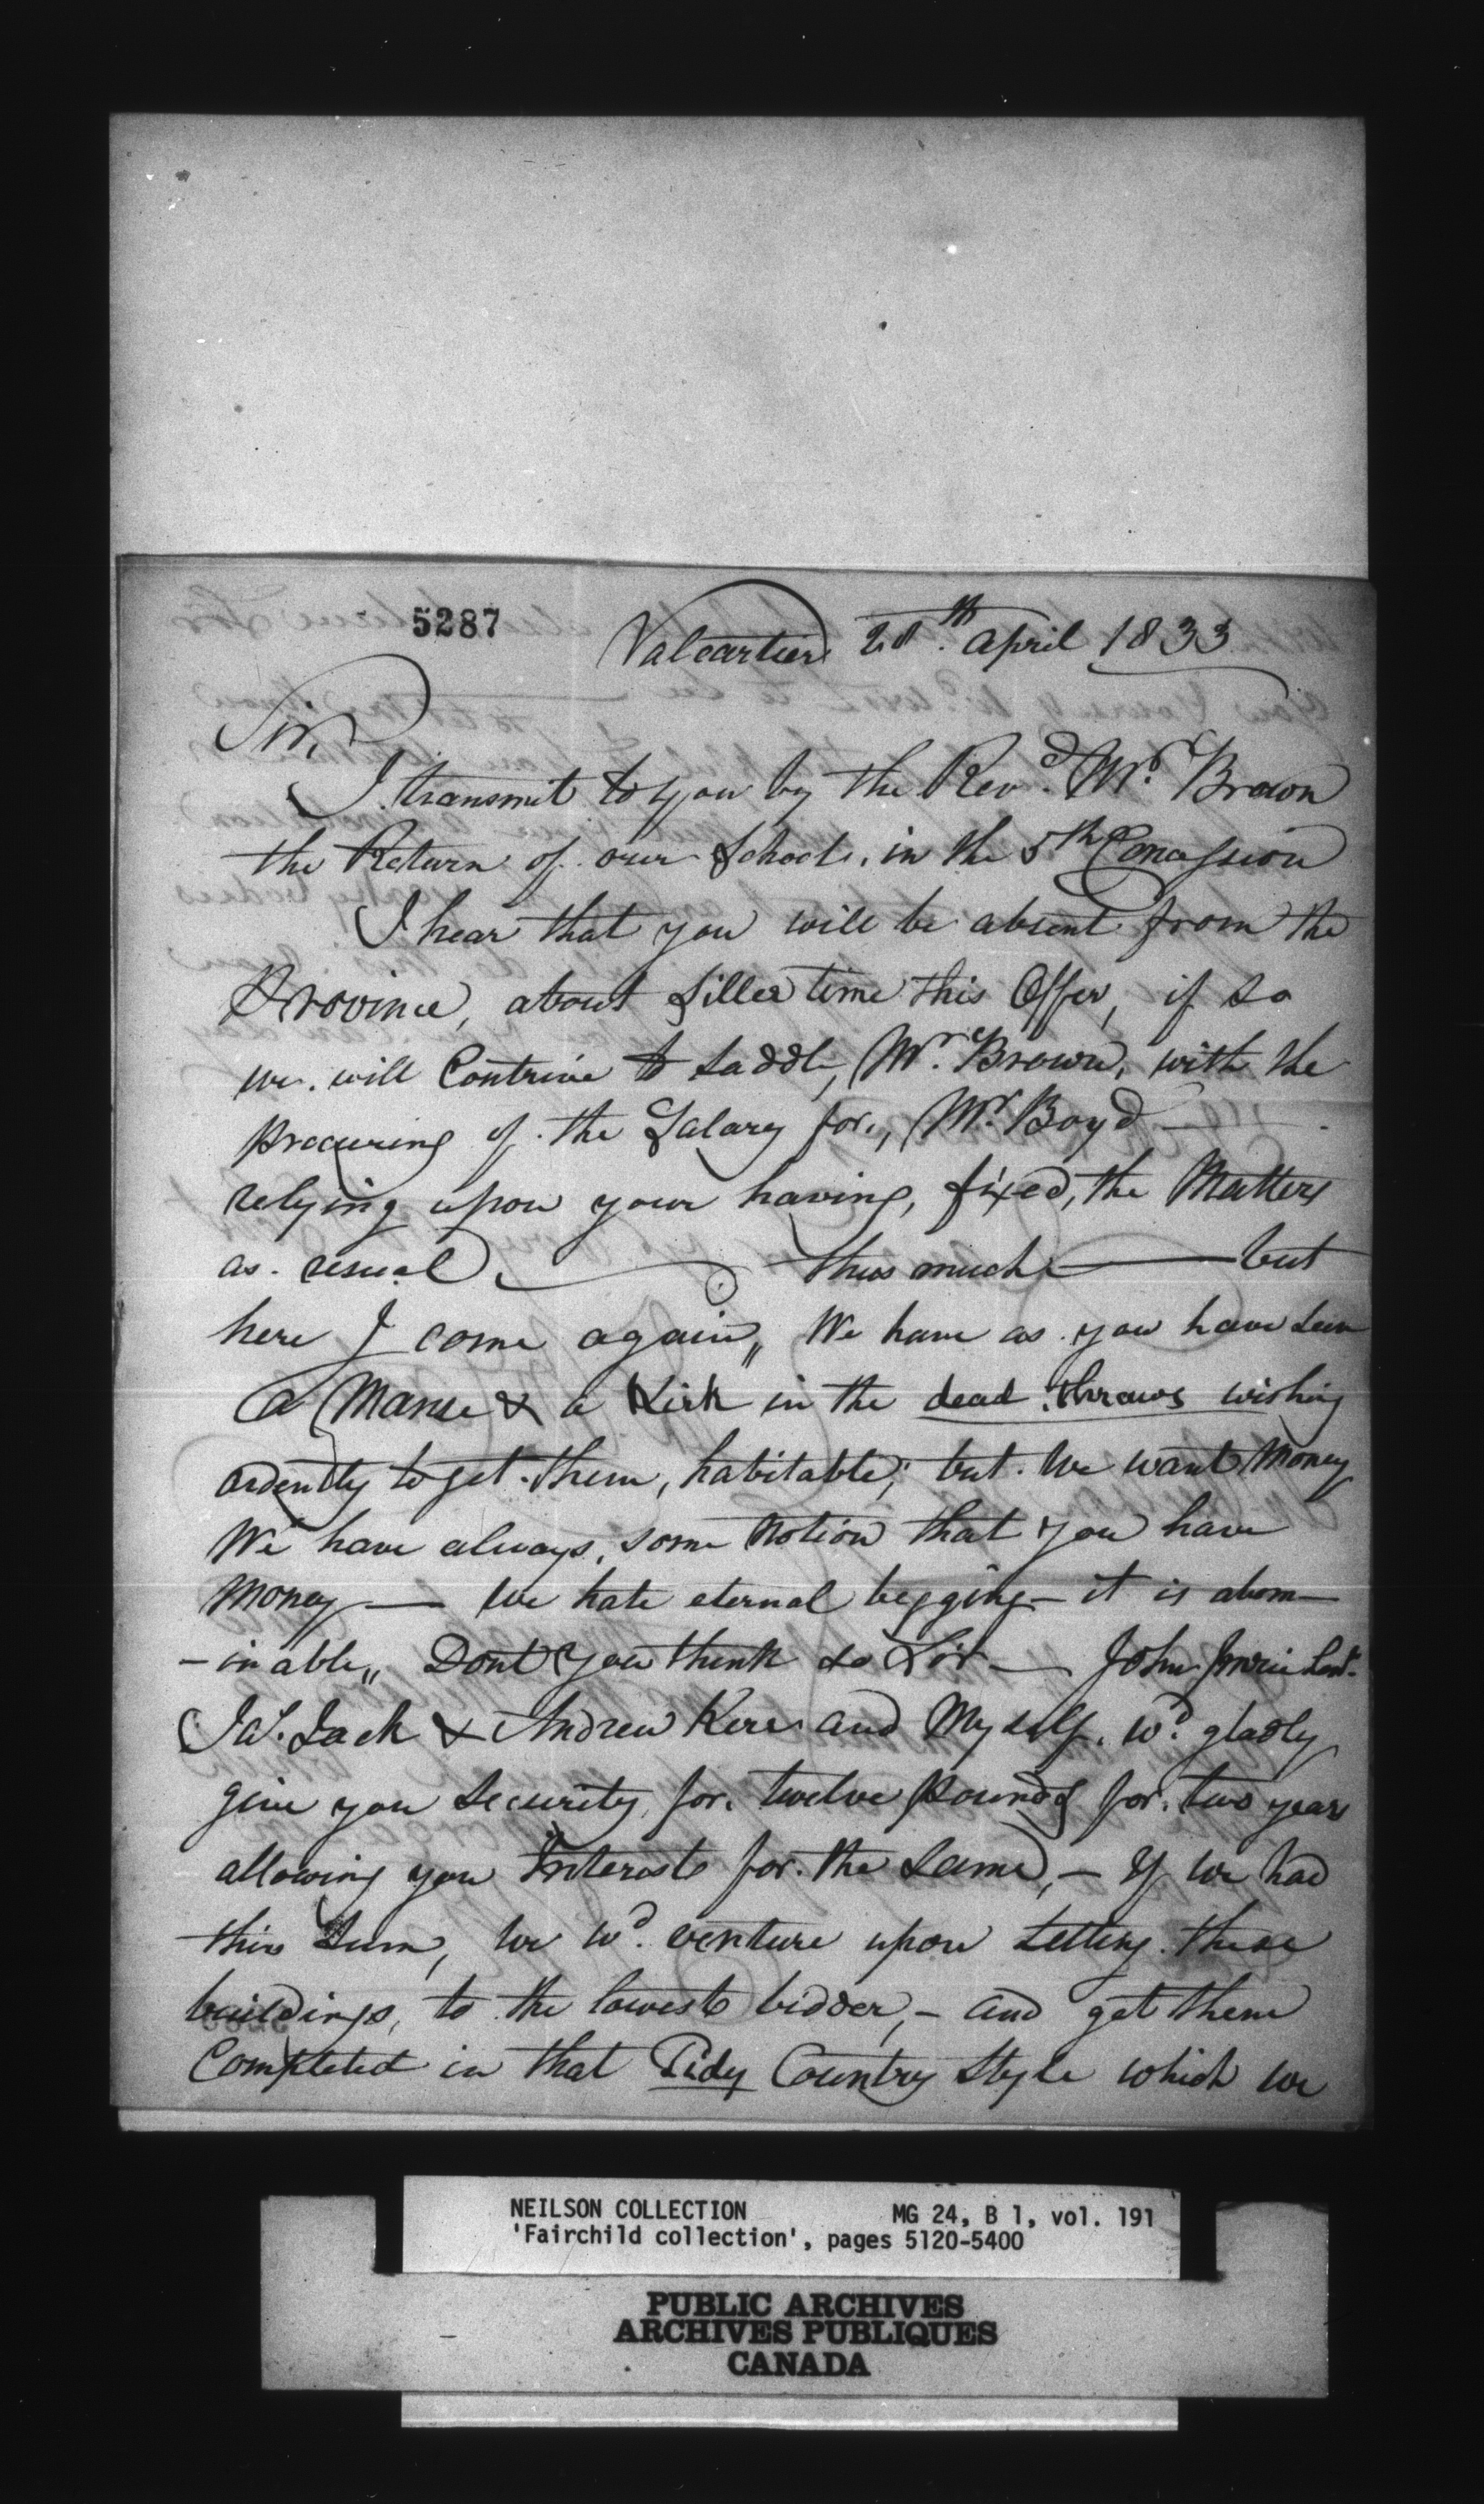 5287
Valcartier 28th. April 1833
Sir,
I transmit to you by the Revd. Mr. Brown
the Return of our School, in the 5th Concession
I hear that you will be absent from the
Province, about siller time this Offer, if so
we will Contrive to saddle, Mr. Brown, with the
procuring of the Salary for, Mr. Boyd —
relying upon your having, fixed, the Matters
as usual — thus much — but
here I come again,, We have as you have seen
a Manse & a Kirk in the dead thraws wishing
ardently to get them, habitable; but we want Money
We have always, some Notion that you have
Money — We hate eternal begging — it is abom-
-inable,, Dont you think so Sir — John
Jas. Jack & Andrew Kerr and Myself. wd. gladly
give you Security, for twelve pounds for two years
allowing you Interest for the Same, — If we had
this Sum, we wd. venture upon letting these
buildings, to the lowest bidder, — and get them
Completed in that Tidy Country Style which we
NEILSON COLLECTION MG 24, B 1, vol. 191
'Fairchild collection', pages 5120-5400
PUBLIC ARCHIVES
ARCHIVES PUBLIQUES
CANADA